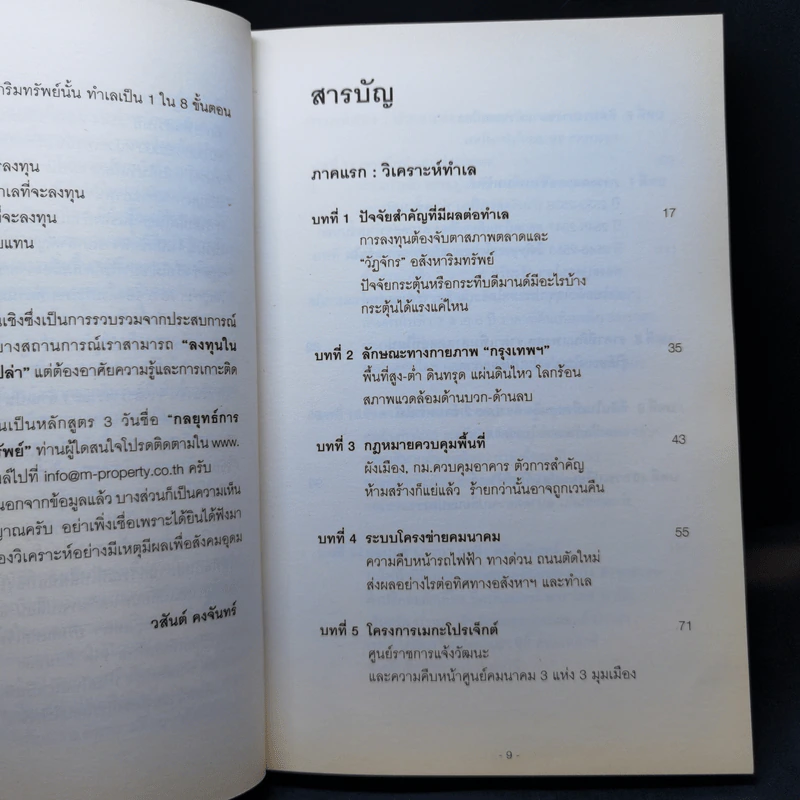 าริมทรัพย์นั้น ทำเลเป็น 1 ใน 8 ขั้นตอน
รลงทุน
าเลที่จะลงทุน
ที่จะลงทุน
บแทน
นเชิงซึ่งเป็นการรวบรวมจากประสบการณ์
บางสถานการณ์เราสามารถ "ลงทุนใน
ปล่า" แต่ต้องอาศัยความรู้และการเกาะติด
นเป็นหลักสูตร 3 วันชื่อ "กลยุทธ์การ
รัพย์" ท่านผู้ใดสนใจโปรดติดตามใน www.
มล์ไปที่ info@m-property.co.th ครับ
นอกจากข้อมูลแล้ว บางส่วนก็เป็นความเห็น
ญาณครับ อย่าเพิ่งเชื่อเพราะได้ยินได้ฟังมา
องวิเคราะห์อย่างมีเหตุมีผลเพื่อสังคมอุดม
วสันต์ คงจันทร์
สารบัญ
ภาคแรก : วิเคราะห์ทำเล
บทที่ 1 ปัจจัยสำคัญที่มีผลต่อทำเล 17
การลงทุนต้องจับตาสภาพตลาดและ
"วัฏจักร" อสังหาริมทรัพย์
ปัจจัยกระตุ้นหรือกระทืบดีมานด์มีอะไรบ้าง
กระตุ้นได้แรงแค่ไหน
บทที่ 2 ลักษณะทางกายภาพ "กรุงเทพฯ" 35
พื้นที่สูง-ต่ำ ดินทรุด แผ่นดินไหว โลกร้อน
สภาพแวดล้อมด้านบวก-ด้านลบ
บทที่ 3 กฎหมายควบคุมพื้นที่ 43
ผังเมือง, กม.ควบคุมอาคาร ตัวการสำคัญ
ห้ามสร้างก็แย่แล้ว ร้ายกว่านั้นอาจถูกเวนคืน
บทที่ 4 ระบบโครงข่ายคมนาคม 55
ความคืบหน้ารถไฟฟ้า ทางด่วน ถนนตัดใหม่
ส่งผลอย่างไรต่อทิศทางอสังหาฯ และทำเล
บทที่ 5 โครงการเมกะโปรเจ็กต์ 71
ศูนย์ราชการแจ้งวัฒนะ
และความคืบหน้าศูนย์คมนาคม 3 แห่ง 3 มุมเมือง
- 9 -